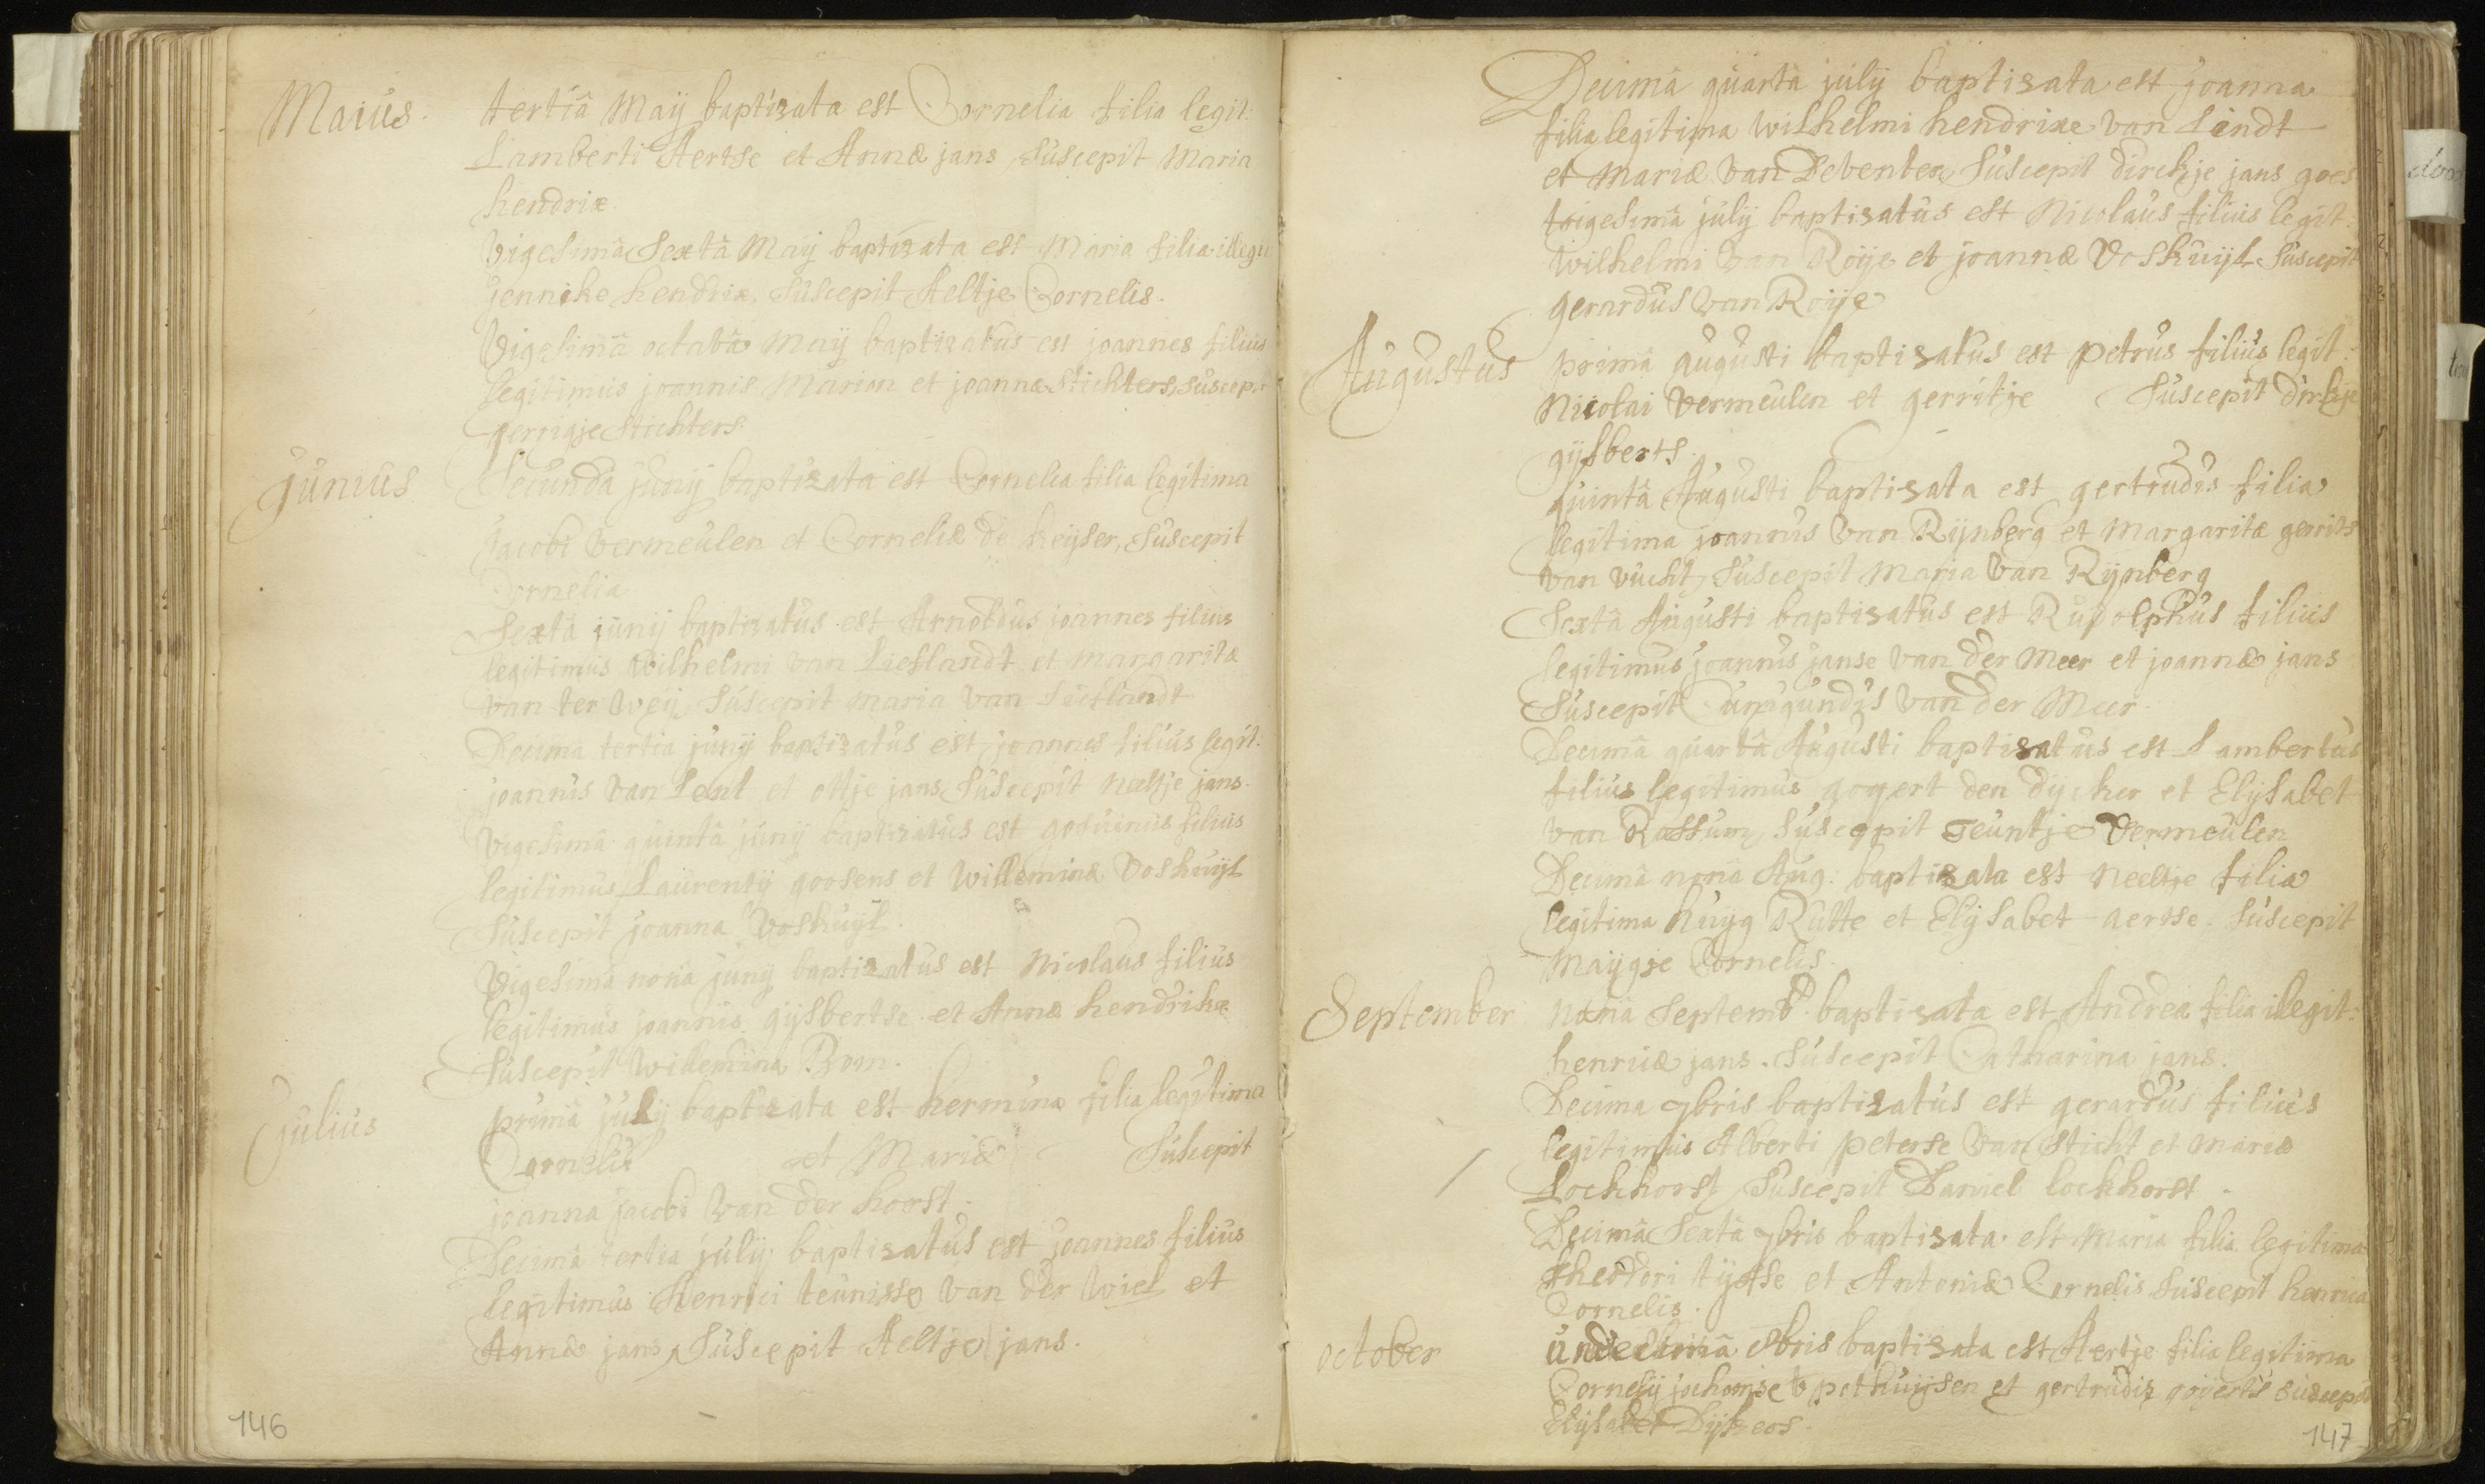 Maius.
tertiâ Maij baptizata est Cornelia filia legit:
Lamberti Aertse et Annæ jans, Suscepit Maria
hendrix.
Vigesimâ Sextâ Maij baptizata est Maria filia illegit
jennike hendrix, Suscepit Aeltje Cornelis.
Vigesimâ octavâ Maij baptizatus est joannes filius
legitimus joannis Marion et joannæ Stichters, suscepit
gerrigje Stichters.
Junius
Secundâ junij baptizata est Cornelia filia legitima
jacobi Vermeulen et Corneliæ de keijser, Suscepit
Cornelia
Sextâ junij baptizatus est Arnoldus joannes filius
legitimus Wilhelmi van Lieflandt et margaritæ
van ter Weij, Suscepit maria van Lieflandt
Decimâ tertia junij baptizatus est joannes filius legit:
joannis van Lent et ottje jans Suscepit neeltje jans.
Vigesimâ quintâ junij baptizatus est gosuinus filius
legitimus Laurentij goosens et Willeminæ Voskuijl
Suscepit joanna Voskuijl.
Vigesimâ nonâ junij baptizatus est Nicolaus filius
legitimus joannis gijsbertse et Annæ hendrikx
Suscepit Willemina Bom.
Julius
primâ julij baptizata est hermina filia legitima
Cornelii et Mariæ Suscepit
joanna jacobi van der horst.
Decimâ tertia julij baptisatus est joannes filius
legitimus Henrici teunisse van der Wiel et
Annæ jans, Suscepit Aeltje jans.
146
Decimâ quartâ julij baptisata est joanna
filia legitima Wilhelmi hendrixe van Lindt
et Mariæ van Deventer, Suscepit dirckje jans goes
trigesimâ julij baptisatus est Nicolaus filius legit:
Wilhelmi van Roije et joannæ Voskuijl Suscepit
gerardus van Roije
Augustus
primâ Augusti baptisatus est petrus filius legit:
Nicolai Vermeulen et gerritje Suscepit dirkje
gijsberts.
quintâ Augusti baptisata est gertrudis filia
legitima joannis van Rijnberg et Margaritæ gerrits
van vucht, Suscepit Maria van Rijnberg
Sextâ Augusti baptisatus est Rudolphus filius
legitimus joannis janse van der Meer et joannæ jans
Suscepit Cunigundis van der Meer.
Decimâ quartâ Augusti baptisatus est Lambertus
filius legitimus govert den dijcker et Elijsabet
van Rossum, Suscepit Teuntje Vermeulen
Decimâ nonâ Aug: baptisata est Neeltje filia
legitima huijg Rutte et Elijsabet aertse. Suscepit
Maijgje Cornelis.
September
Nonâ Septemb: baptisata est Andrea filia illegit:
henricæ jans. Suscepit Catharina jans.
Decima 7bris baptisatus est gerardus filius
legitimus Alberti peterse van Sticht et Mariæ
Lockhorst, Suscepit Daniel lockhorst.
Decimâ Sextâ 7bris baptisata est Maria filia legitima
theodori tijsse et Antoniæ Cornelis Suscepit henrica
Cornelis.
october
undecimâ 8bris baptisata est Aertje filia legitima
Cornelij jochomse v pothuijsen et gertrudis goverts suscepit
Elijsabet Dijkers.
147